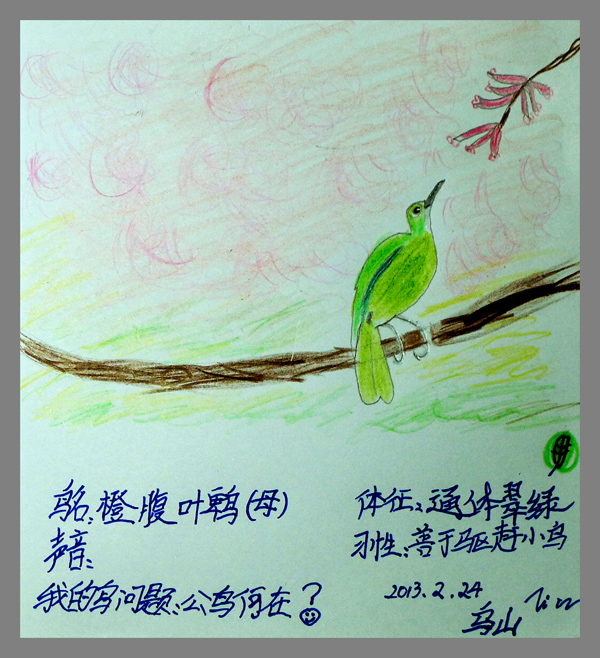 鸟名:橙腹叶鹎(母)
声音:
我的鸟问题:公鸟何在?
体征:通体翠绿
习性:善于驱赶小鸟
2013.2.24
乌山